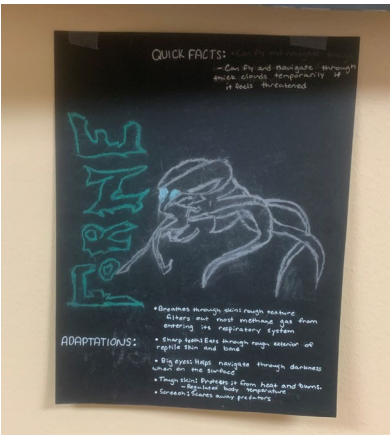 QUICK FACTS:
- Can fly and navigate through
thick clouds temporarily if
it feels threatened
FORNE
• Breathes through skin: rough texture
filters out most methane gas from
entering its respiratory system
ADAPTATIONS:
• Sharp teeth: Eats through rough exterior of
reptile skin and bone
• Big eyes: Helps navigate through darkness
when on the surface
• Tough skin: Protects it from heat and burns.
- Regulated body temperature
• Screech: Scares away predators